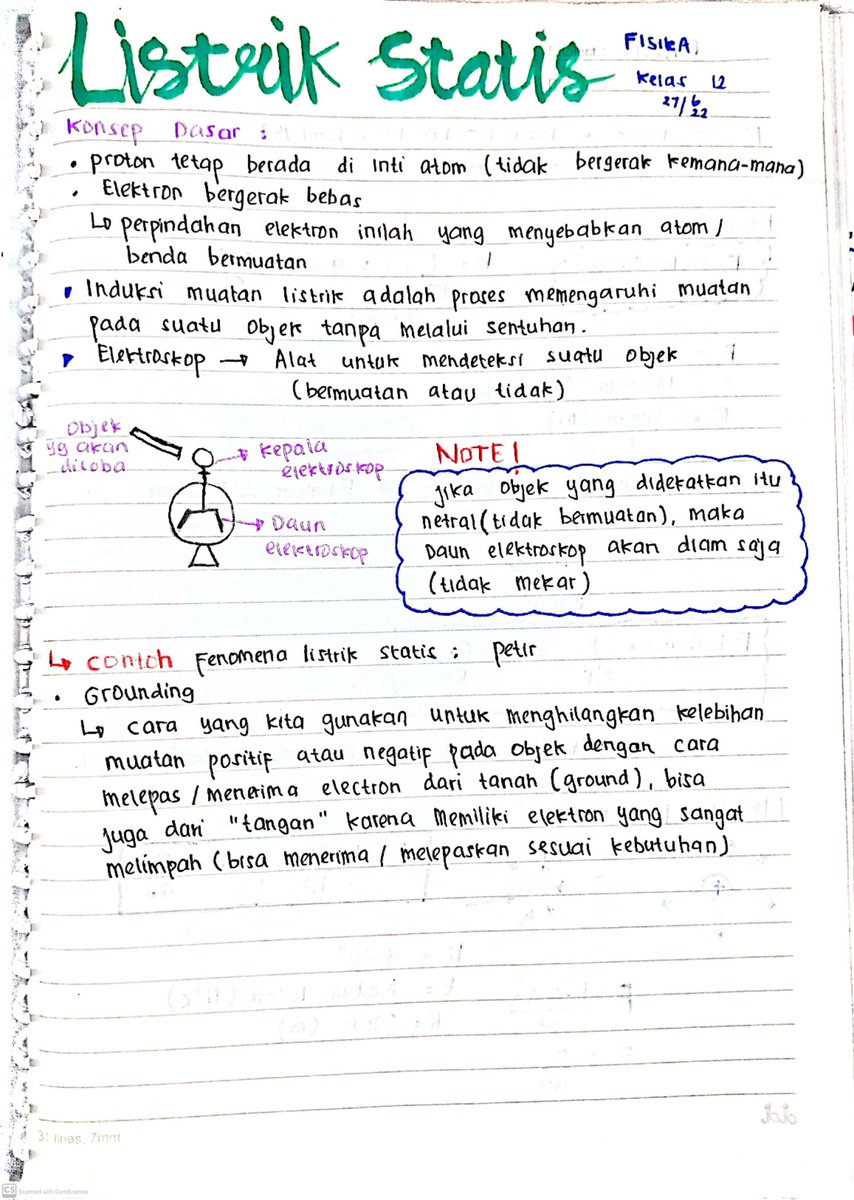 Listrik Statis
FISIKA,
Kelas 12
27/6 22
Konsep Dasar :
• proton tetap berada di inti atom (tidak bergerak kemana-mana)
• Elektron bergerak bebas
↳ perpindahan elektron inilah yang menyebabkan atom /
benda bermuatan
Induksi muatan listrik adalah proses memengaruhi muatan
pada suatu objek tanpa melalui sentuhan.
Elektroskop → Alat untuk mendeteksi suatu objek
(bermuatan atau tidak)
Objek
yg akan
dicoba
→ kepala
elektroskop
→ Daun
elektroskop
NOTE!
jika objek yang didekatkan itu
netral (tidak bermuatan), maka
Daun elektroskop akan diam saja
(tidak mekar)
↳ contoh Fenomena listrik statis : petir
• Grounding
↳ cara yang kita gunakan untuk menghilangkan kelebihan
muatan positif atau negatif pada objek dengan cara
melepas / menerima electron dari tanah (ground), bisa
juga dari "tangan" karena memiliki elektron yang sangat
melimpah (bisa menerima / melepaskan sesuai kebutuhan)
31 lines, 7mm
CS Scanned with CamScanner